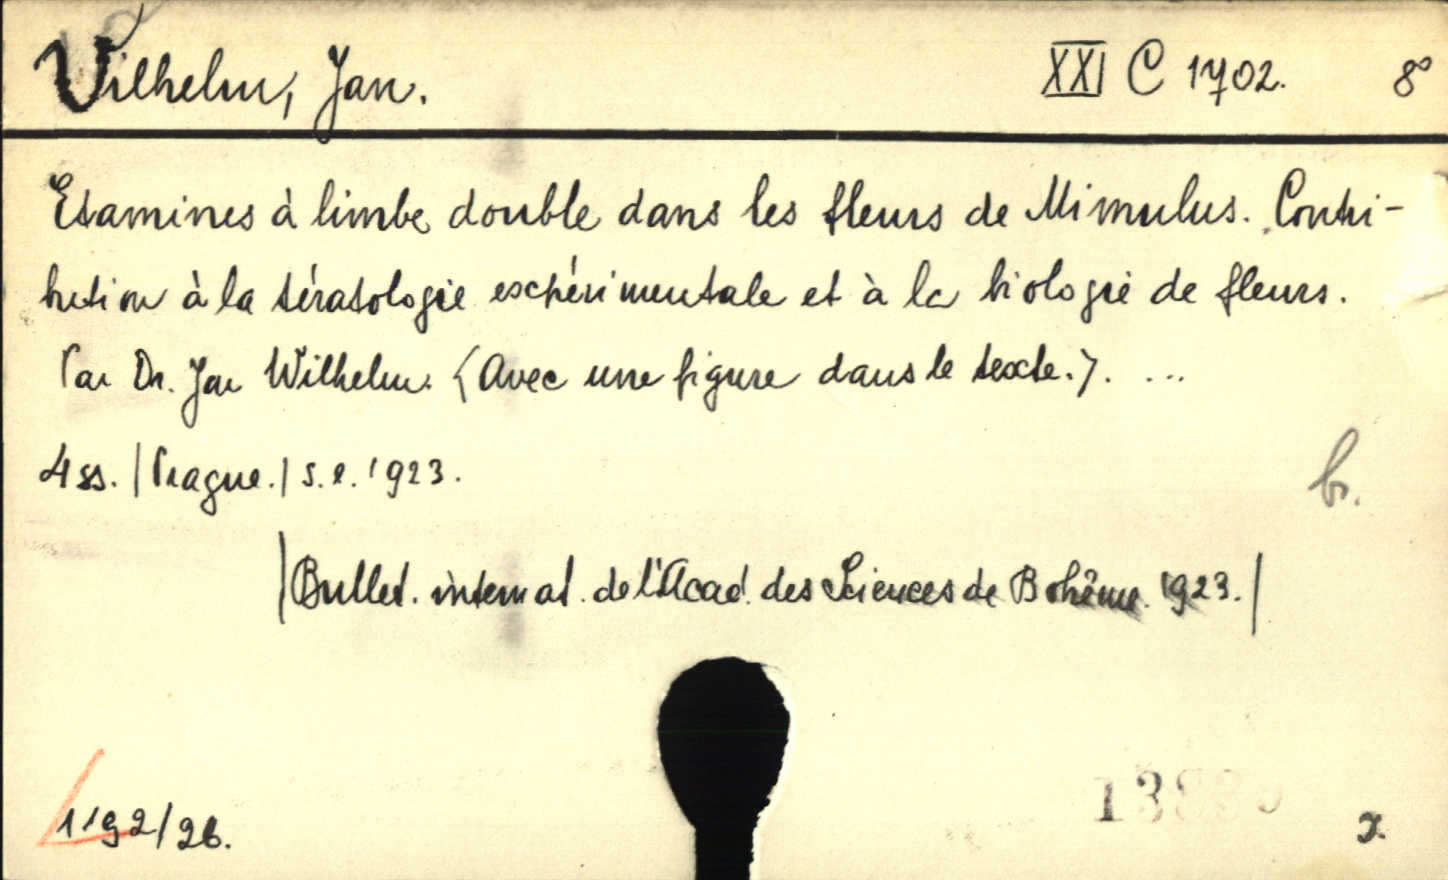 Vilhelm, Jan. XXI C 1702. 8°
Etamines à limbe double dans les fleurs de Mimulus. Contri-
bution à la tératologie expérimentale et à la biologie de fleurs.
Par Dr. Jan Wilhelm. (Avec une figure dans le texte.). ...
4 ss. | Prague. | s. l. 1923.
br.
| Bullet. internat. de l'Acad. des Sciences de Bohême. 1923. |
1192/26.
x.